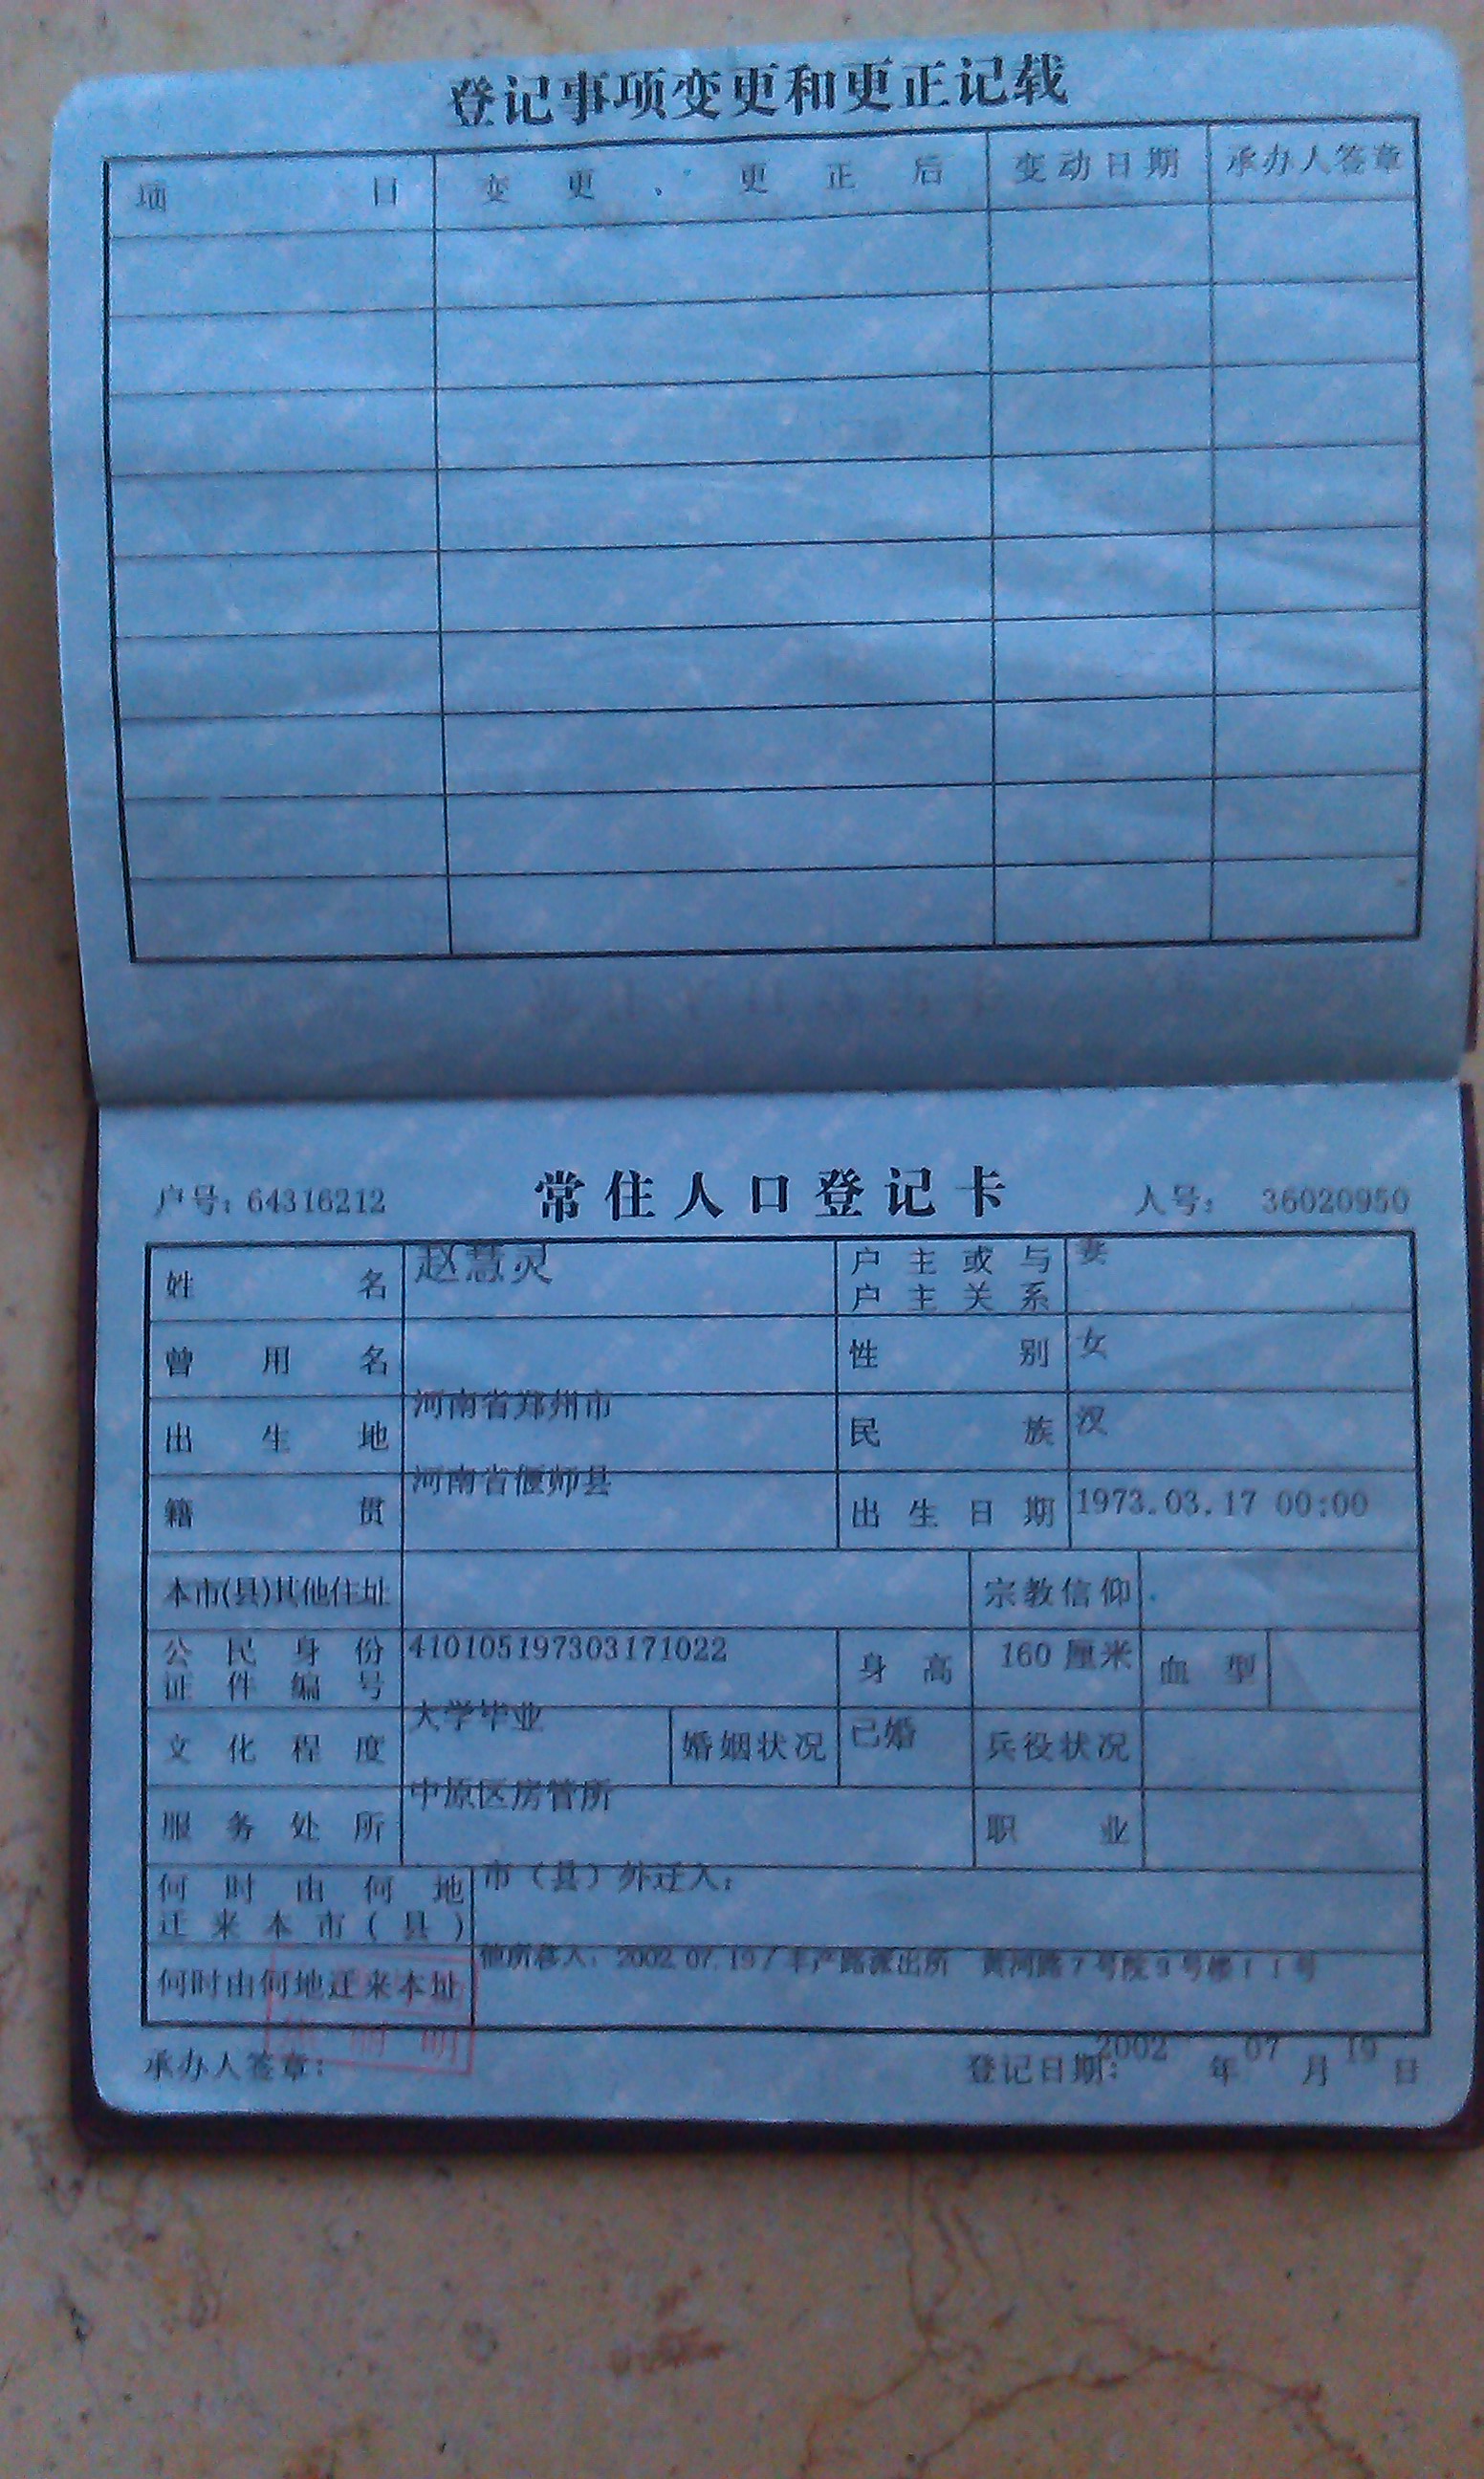 登记事项变更和更正记载
项目 变更、更正后 变动日期 承办人签章
户号：64316212 常住人口登记卡 人号：36020950
姓名 赵慧灵 户主或与户主关系 妻
曾用名 性别 女
出生地 河南省郑州市 民族 汉
籍贯 河南省偃师县 出生日期 1973.03.17 00:00
本市(县)其他住址 宗教信仰
公民身份证件编号 410105197303171022 身高 160厘米 血型
文化程度 大学毕业 婚姻状况 已婚 兵役状况
服务处所 中原区房管所 职业
何时由何地迁来本市(县) 市（县）外迁入：
何时由何地迁来本址 他所移入：2002.07.19/丰产路派出所 黄河路7号院9号楼11号
承办人签章： 登记日期：2002年07月19日